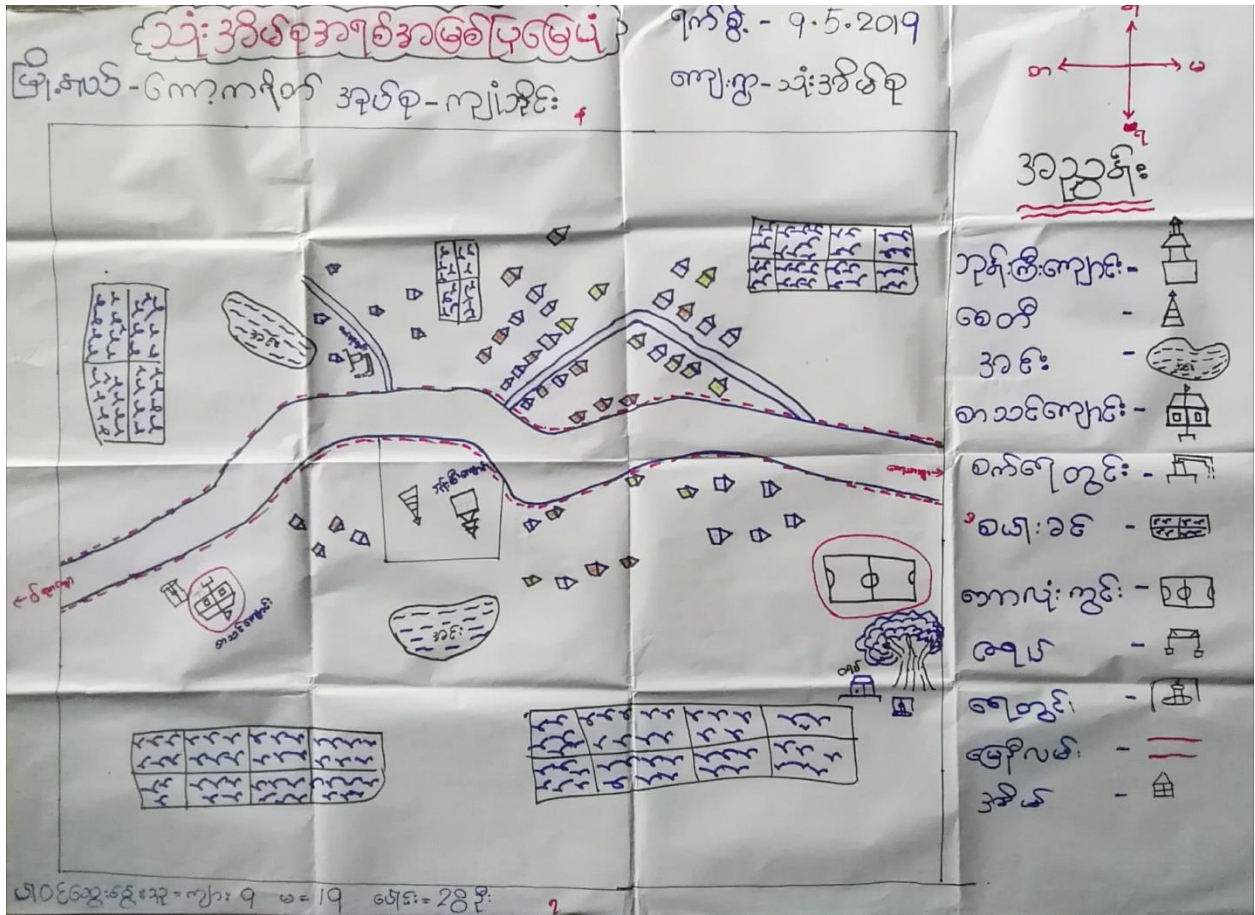 သုံးအိမ်စုအရစ်အမြစ်ပြမြေပုံ
ရက်စွဲ. - 9.5.2019
မြို့နယ် - ကော့ကရိတ် အုပ်စု - ကျုံဘိုင်း
ကျေးရွာ - သုံးအိမ်စု
အညွှန်း
ဘုန်းကြီးကျောင်း -
စေတီ -
အင်း -
စာသင်ကျောင်း -
စက်ရေတွင်း -
စပါးခင်း -
ဘောလုံးကွင်း -
ဇရပ် -
ရေတွင်း -
မြေနီလမ်း -
အိမ် -
အင်း
အင်း
ဇရပ်
ပါဝင်ဆွေးနွေးသူ = ကျား 9 မ = 19 ပေါင်း = 28 ဦး